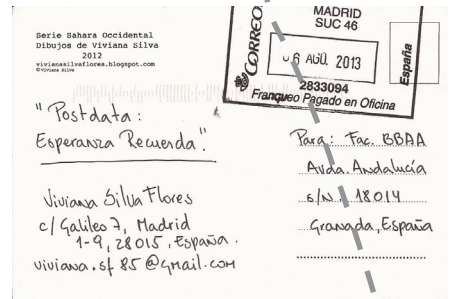 Serie Sahara Occidental
Dibujos de Viviana Silva
2012
vivianasilvaflores.blogspot.com
©Viviana Silva
CORREO
MADRID
SUC 46
6 AGO. 2013
2833094
Franqueo Pagado en Oficina
España
"Postdata:
Esperanza Recuerda".
Viviana Silva Flores
c/ Galileo 7, Madrid
1-9, 28015, España.
viviana.sf85@gmail.com
Para: Fac. BBAA
Avda. Andalucía
s/N 18014
Granada, España